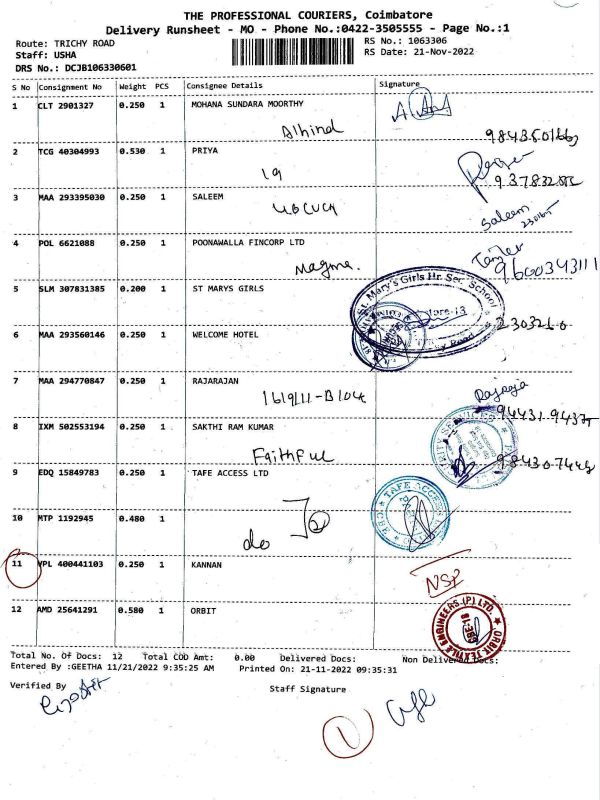 THE PROFESSIONAL COURIERS, Coimbatore
Delivery Runsheet - MO - Phone No.:0422-3505555 - Page No.:1
Route: TRICHY ROAD RS No.: 1063306
Staff: USHA RS Date: 21-Nov-2022
DRS No.: DCJB106330601
S No Consignment No Weight PCS Consignee Details Signature
1 CLT 2901327 0.250 1 MOHANA SUNDARA MOORTHY
Alhind
2 TCG 40304993 0.530 1 PRIYA
19
3 MAA 293395030 0.250 1 SALEEM
Saleem
4 POL 6621088 0.250 1 POONAWALLA FINCORP LTD
Magma. 9600343111
5 SLM 307831385 0.200 1 ST MARYS GIRLS
St. Mary's Girls Hr. Sec. School
6 MAA 293560146 0.250 1 WELCOME HOTEL
7 MAA 294770847 0.250 1 RAJARAJAN
8 IXM 502553194 0.250 1 SAKTHI RAM KUMAR
Faithful
9 EDQ 15849783 0.250 1 TAFE ACCESS LTD
TAFE ACCESS
CBE
10 MTP 1192945 0.480 1
do
11 VPL 400441103 0.250 1 KANNAN
NSP
12 AMD 25641291 0.580 1 ORBIT
ORBIT TEXTILE ENGINEERS (P) LTD.
Total No. Of Docs: 12 Total COD Amt: 0.00 Delivered Docs: Non Delivered Docs:
Entered By :GEETHA 11/21/2022 9:35:25 AM Printed On: 21-11-2022 09:35:31
Verified By Staff Signature
1